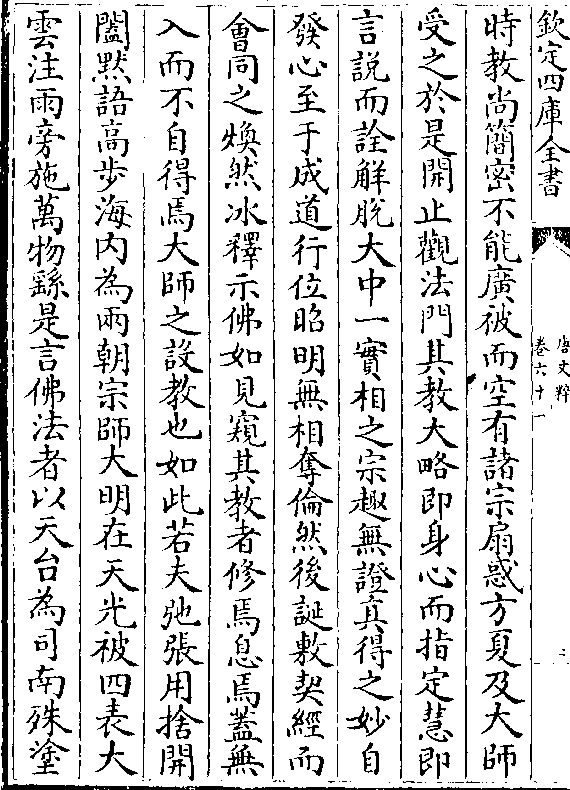 欽定四庫全書
唐文粹
卷六十一
時教尚簡密不能廣被而空有諸宗扇惑方夏及大師
受之於是開止觀法門其教大略即身心而指定慧即
言說而詮解脫大中一實相之宗趣無證真得之妙自
發心至于成道行位昭明無相奪倫然後誕敷契經而
會同之煥然冰釋示佛如見窺其教者修焉息焉蓋無
入而不自得焉大師之設教也如此若夫弛張用捨開
闔默語高步海內為兩朝宗師大明在天光被四表大
雲注雨旁施萬物繇是言佛法者以天台為司南殊塗